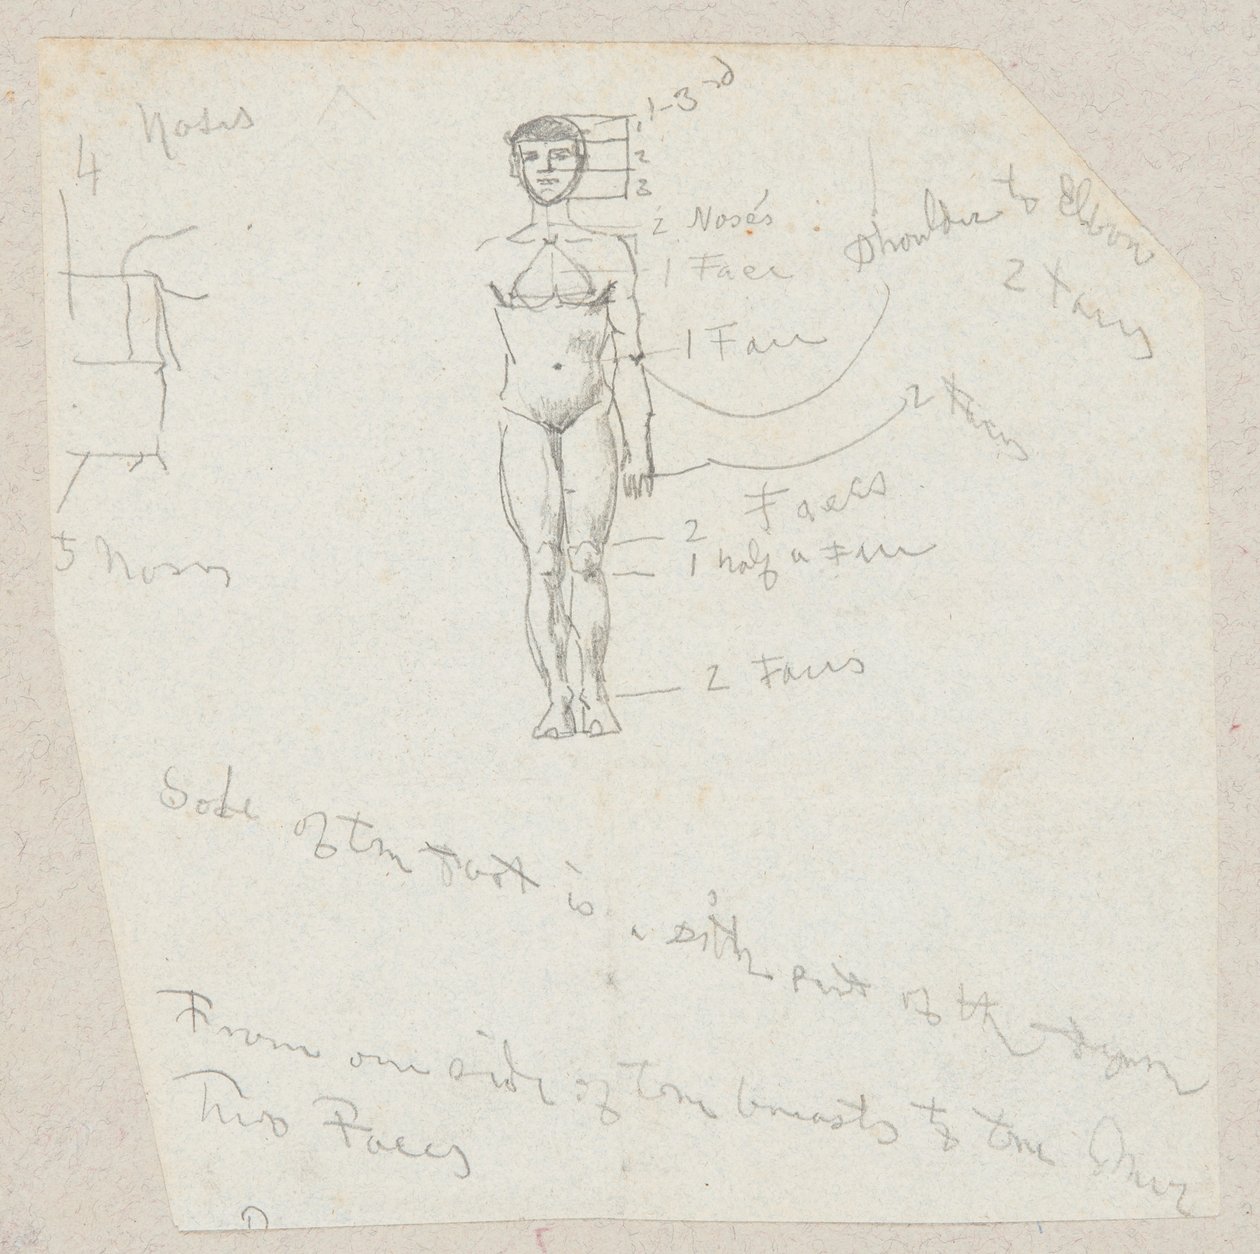 4 Noses
1-3rd
1
2
3
2 Noses
1 Face
Shoulder to Elbow
2 Faces
1 Face
2 Faces
2 Faces
1 half a Face
5 Noses
2 Faces
Sole of the foot is a sixth part of the figure
From one side of the breasts to the other
Two Faces